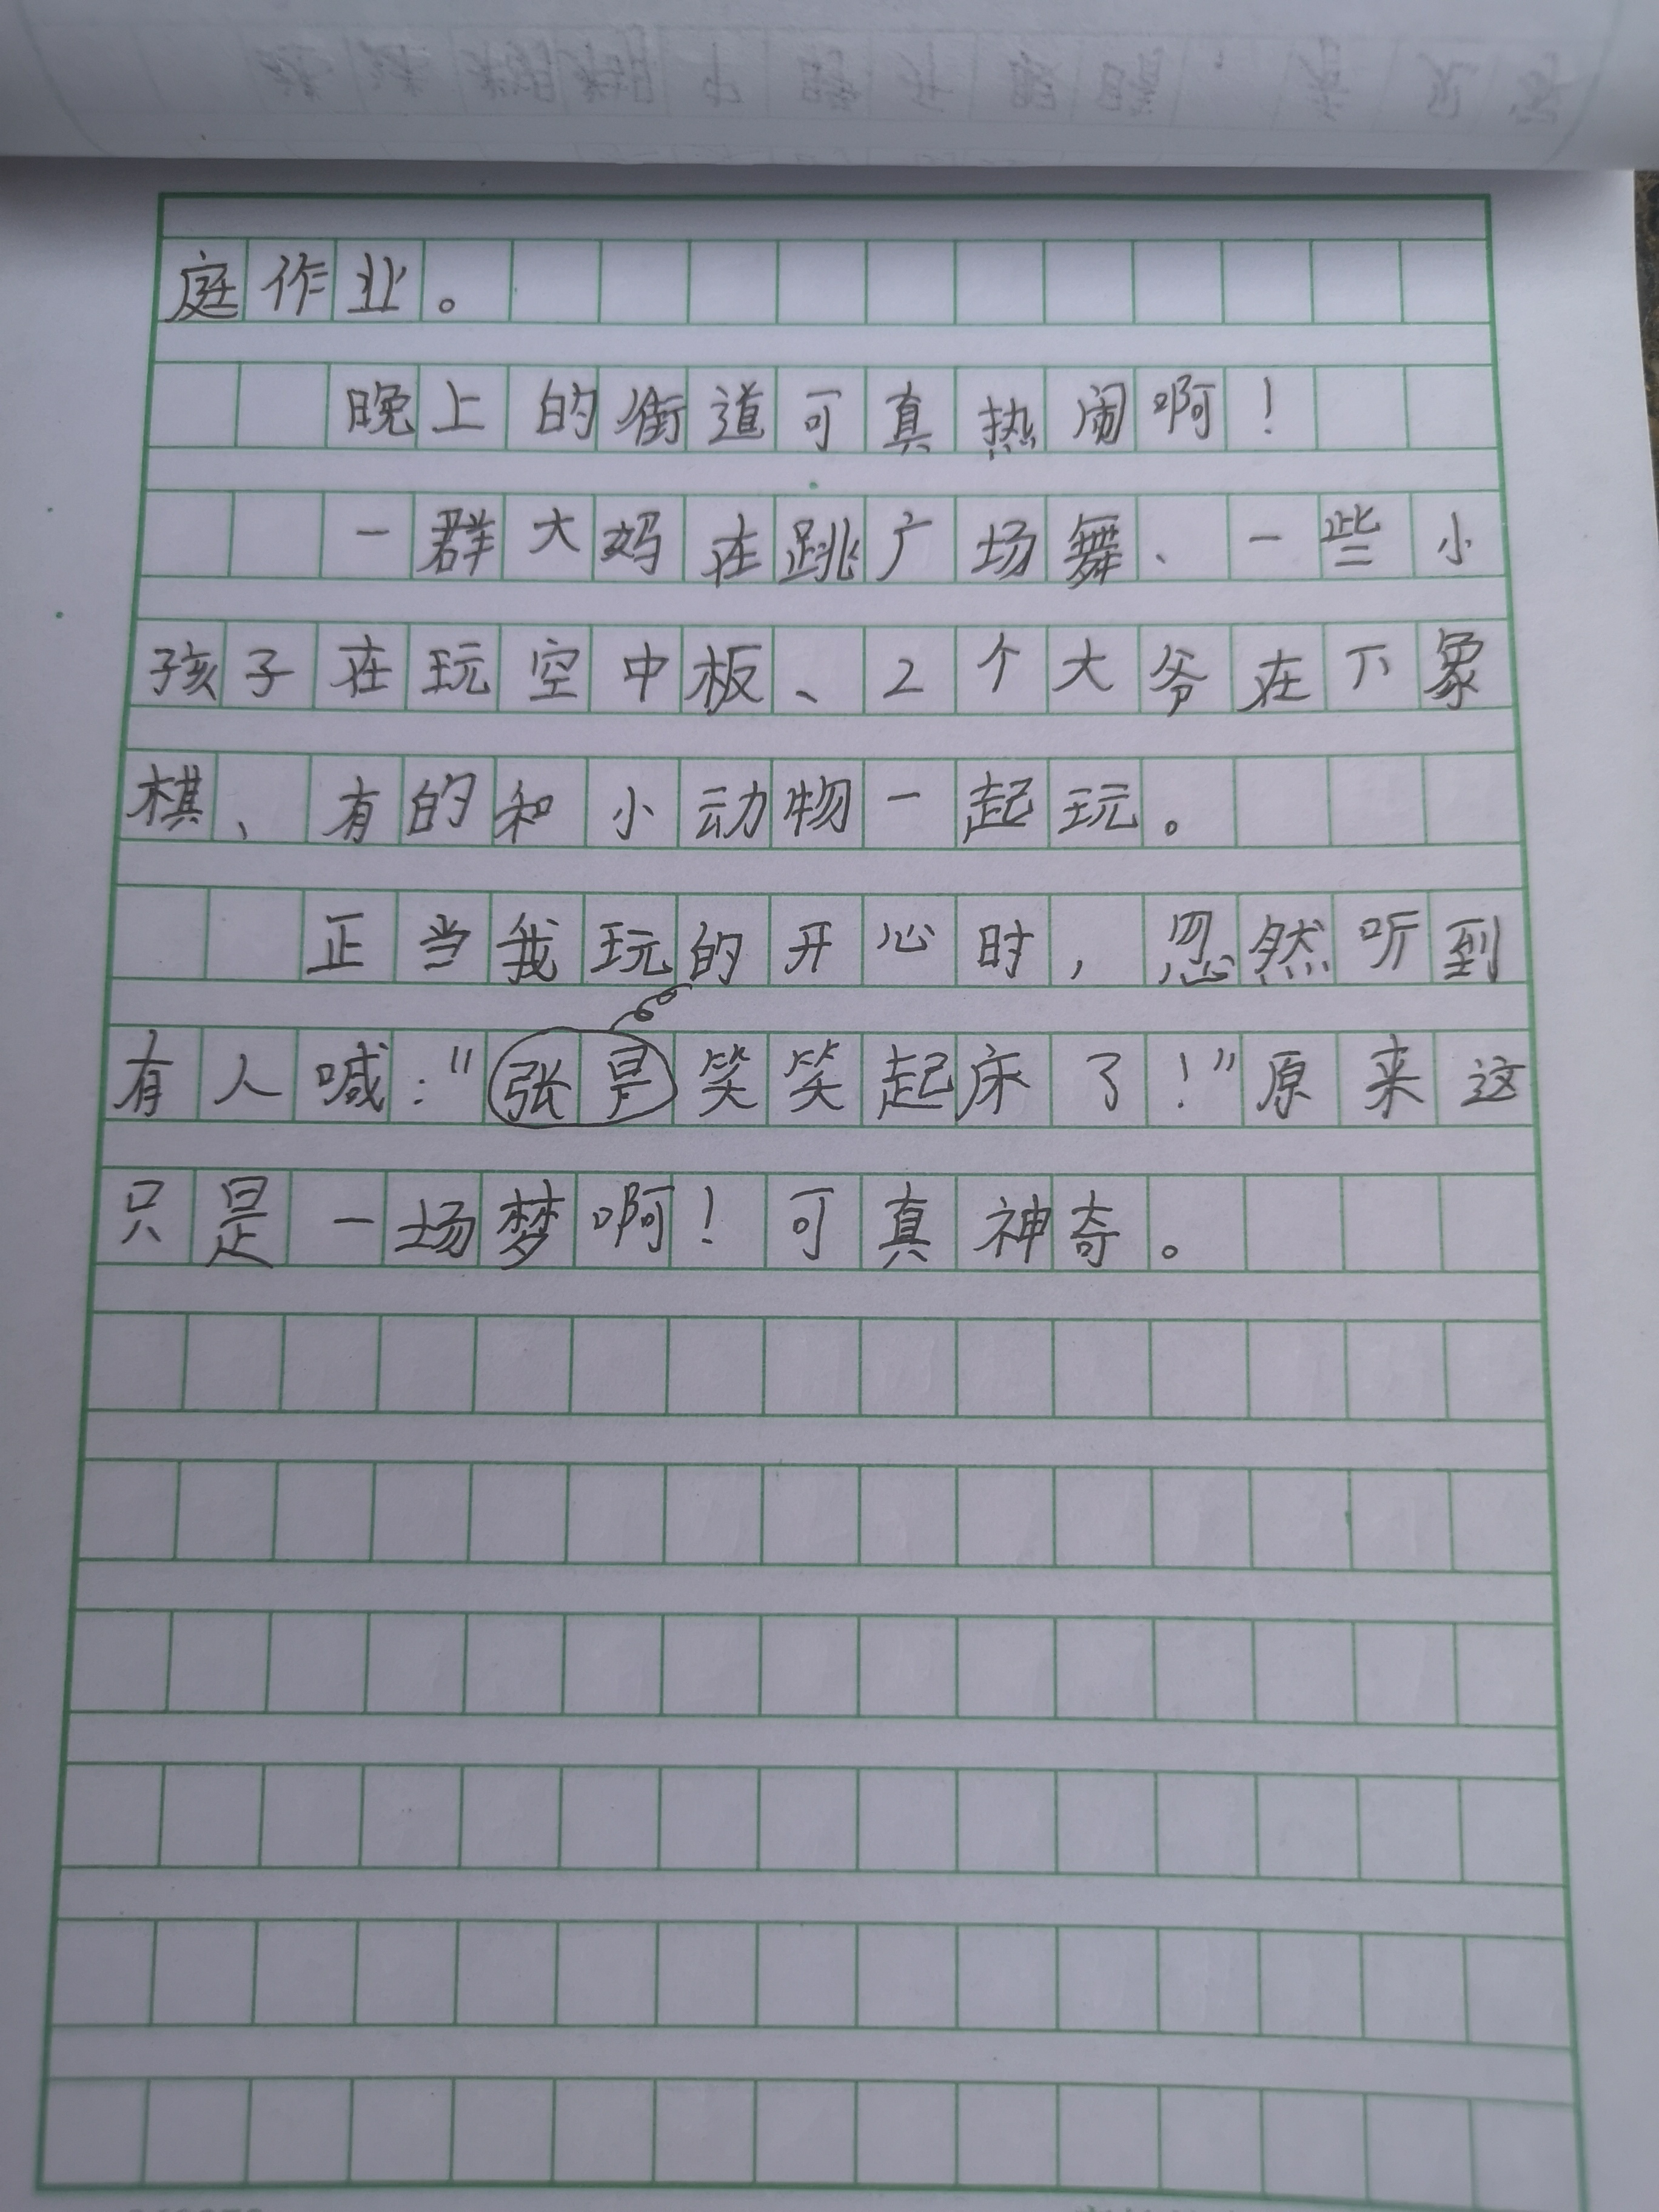 庭作业。
晚上的街道可真热闹啊！
一群大妈在跳广场舞、一些小
孩子在玩空中板、2个大爷在下象
棋、有的和小动物一起玩。
正当我玩的开心时，忽然听到
有人喊："张 笑笑起床了！"原来这
只是一场梦啊！可真神奇。